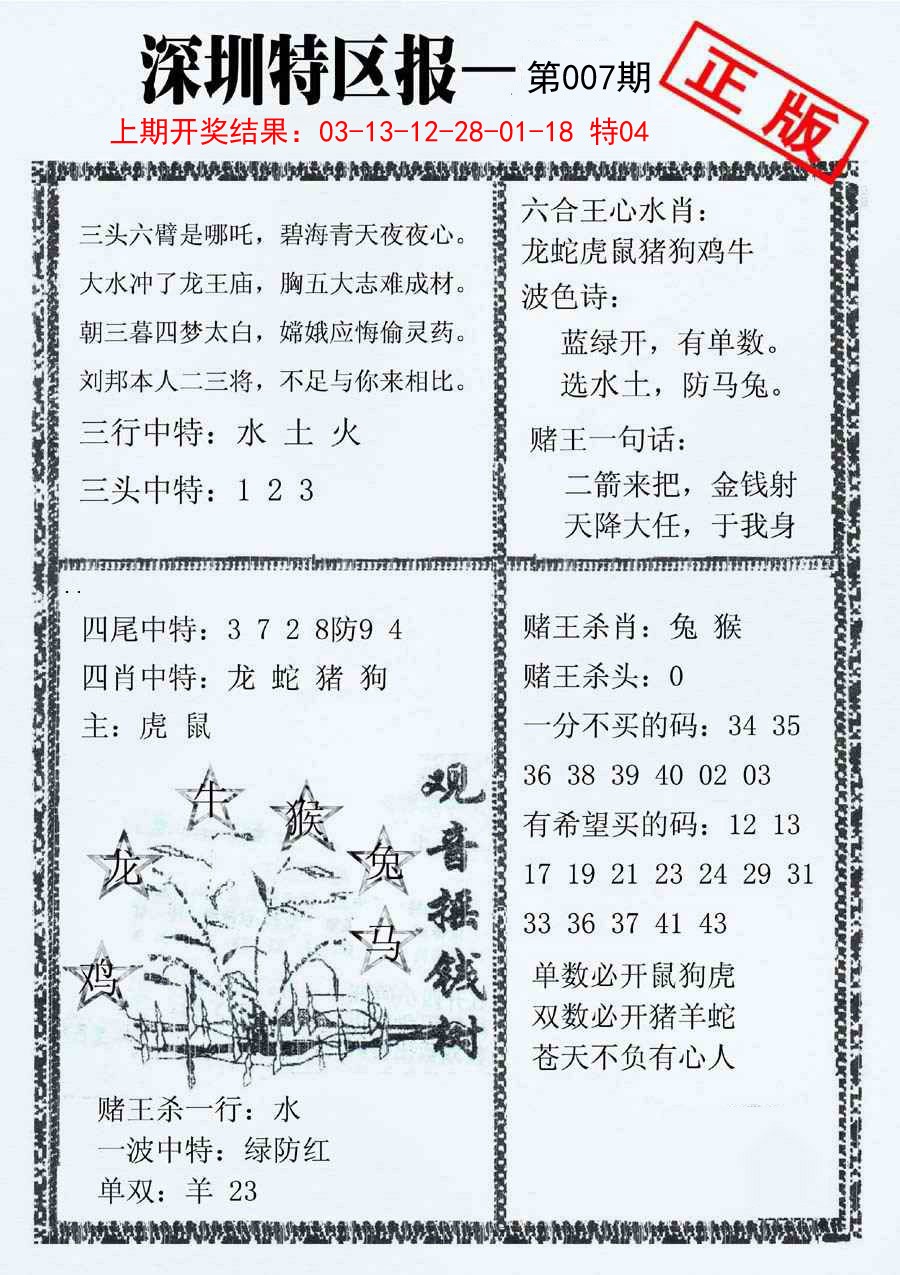 深圳特区报— 第007期
正版
上期开奖结果：03-13-12-28-01-18 特04
三头六臂是哪吒，碧海青天夜夜心。
大水冲了龙王庙，胸五大志难成材。
朝三暮四梦太白，嫦娥应悔偷灵药。
刘邦本人二三将，不足与你来相比。
三行中特：水 土 火
三头中特：1 2 3
六合王心水肖：
龙蛇虎鼠猪狗鸡牛
波色诗：
蓝绿开，有单数。
选水土，防马兔。
赌王一句话：
二箭来把，金钱射
天降大任，于我身
四尾中特：3 7 2 8防9 4
四肖中特：龙 蛇 猪 狗
主：虎 鼠
牛
猴
龙
兔
马
鸡
观音摇钱树
赌王杀一行：水
一波中特：绿防红
单双：羊 23
赌王杀肖：兔 猴
赌王杀头：0
一分不买的码：34 35
36 38 39 40 02 03
有希望买的码：12 13
17 19 21 23 24 29 31
33 36 37 41 43
单数必开鼠狗虎
双数必开猪羊蛇
苍天不负有心人